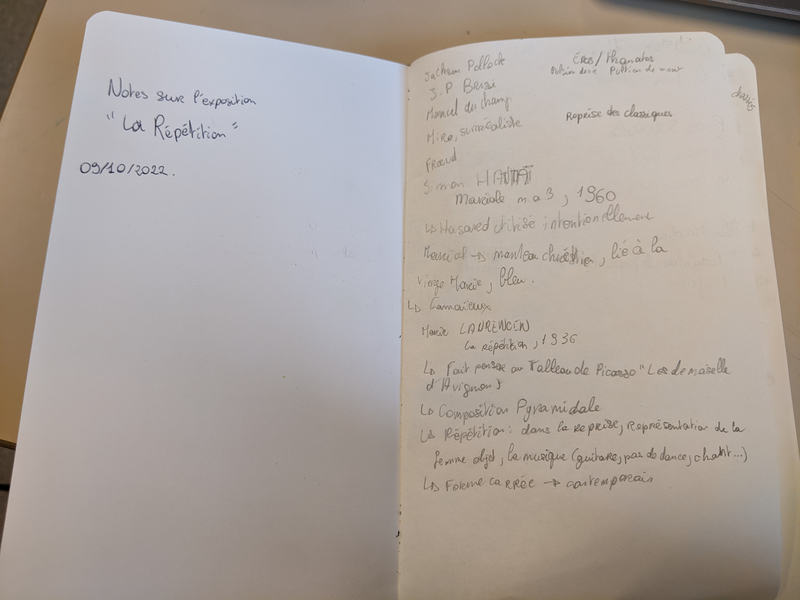 Notes sur l'exposition
"La Répétition"
09/10/2022.
Jackson Pollock
Éros / Thanatos
Pulsion de vie Pulsion de mort
J.P
Marcel du champ
Miro, surréaliste
Reprise des classiques
Freud
Simon HANTAÏ
m.a 3, 1960
↳ Hasard utilisé intentionellement
→ manteau chrétien, lié à la
Vierge Marie, bleu.
↳ Camaïeux
Marie LAURENCEN
La répétition, 1936
↳ Fait penser au Tableau de Picasso "Les demoiselle
d'Avignon"
↳ Composition Pyramidale
↳ Répétition : dans la reprise, représentation de la
femme objet, la musique (guitare, pas de dance, chant...)
↳ Forme carrée → contemporain